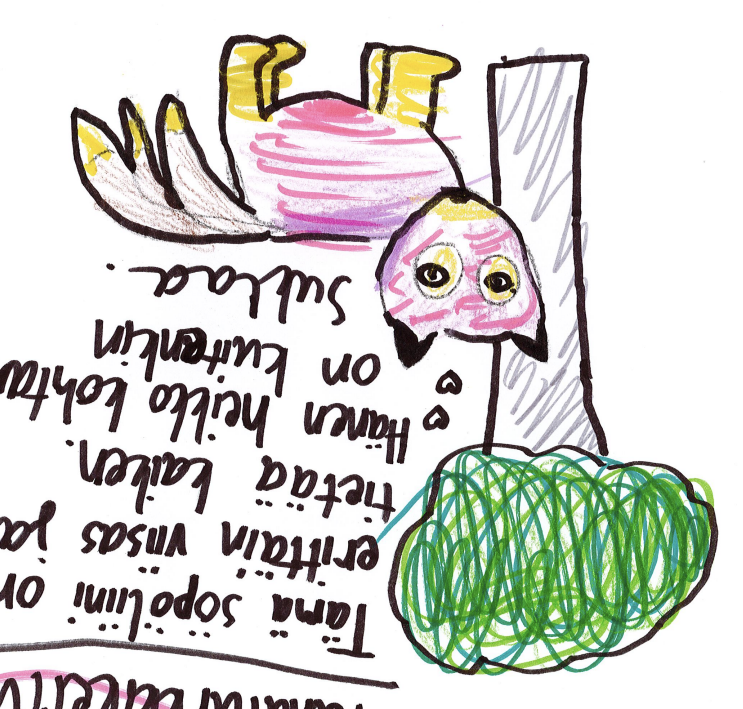 Tämä söpöliini on
erittäin viisas ja
tietää kaiken.
Hänen heikko
on kuitenkin
Suklaa.